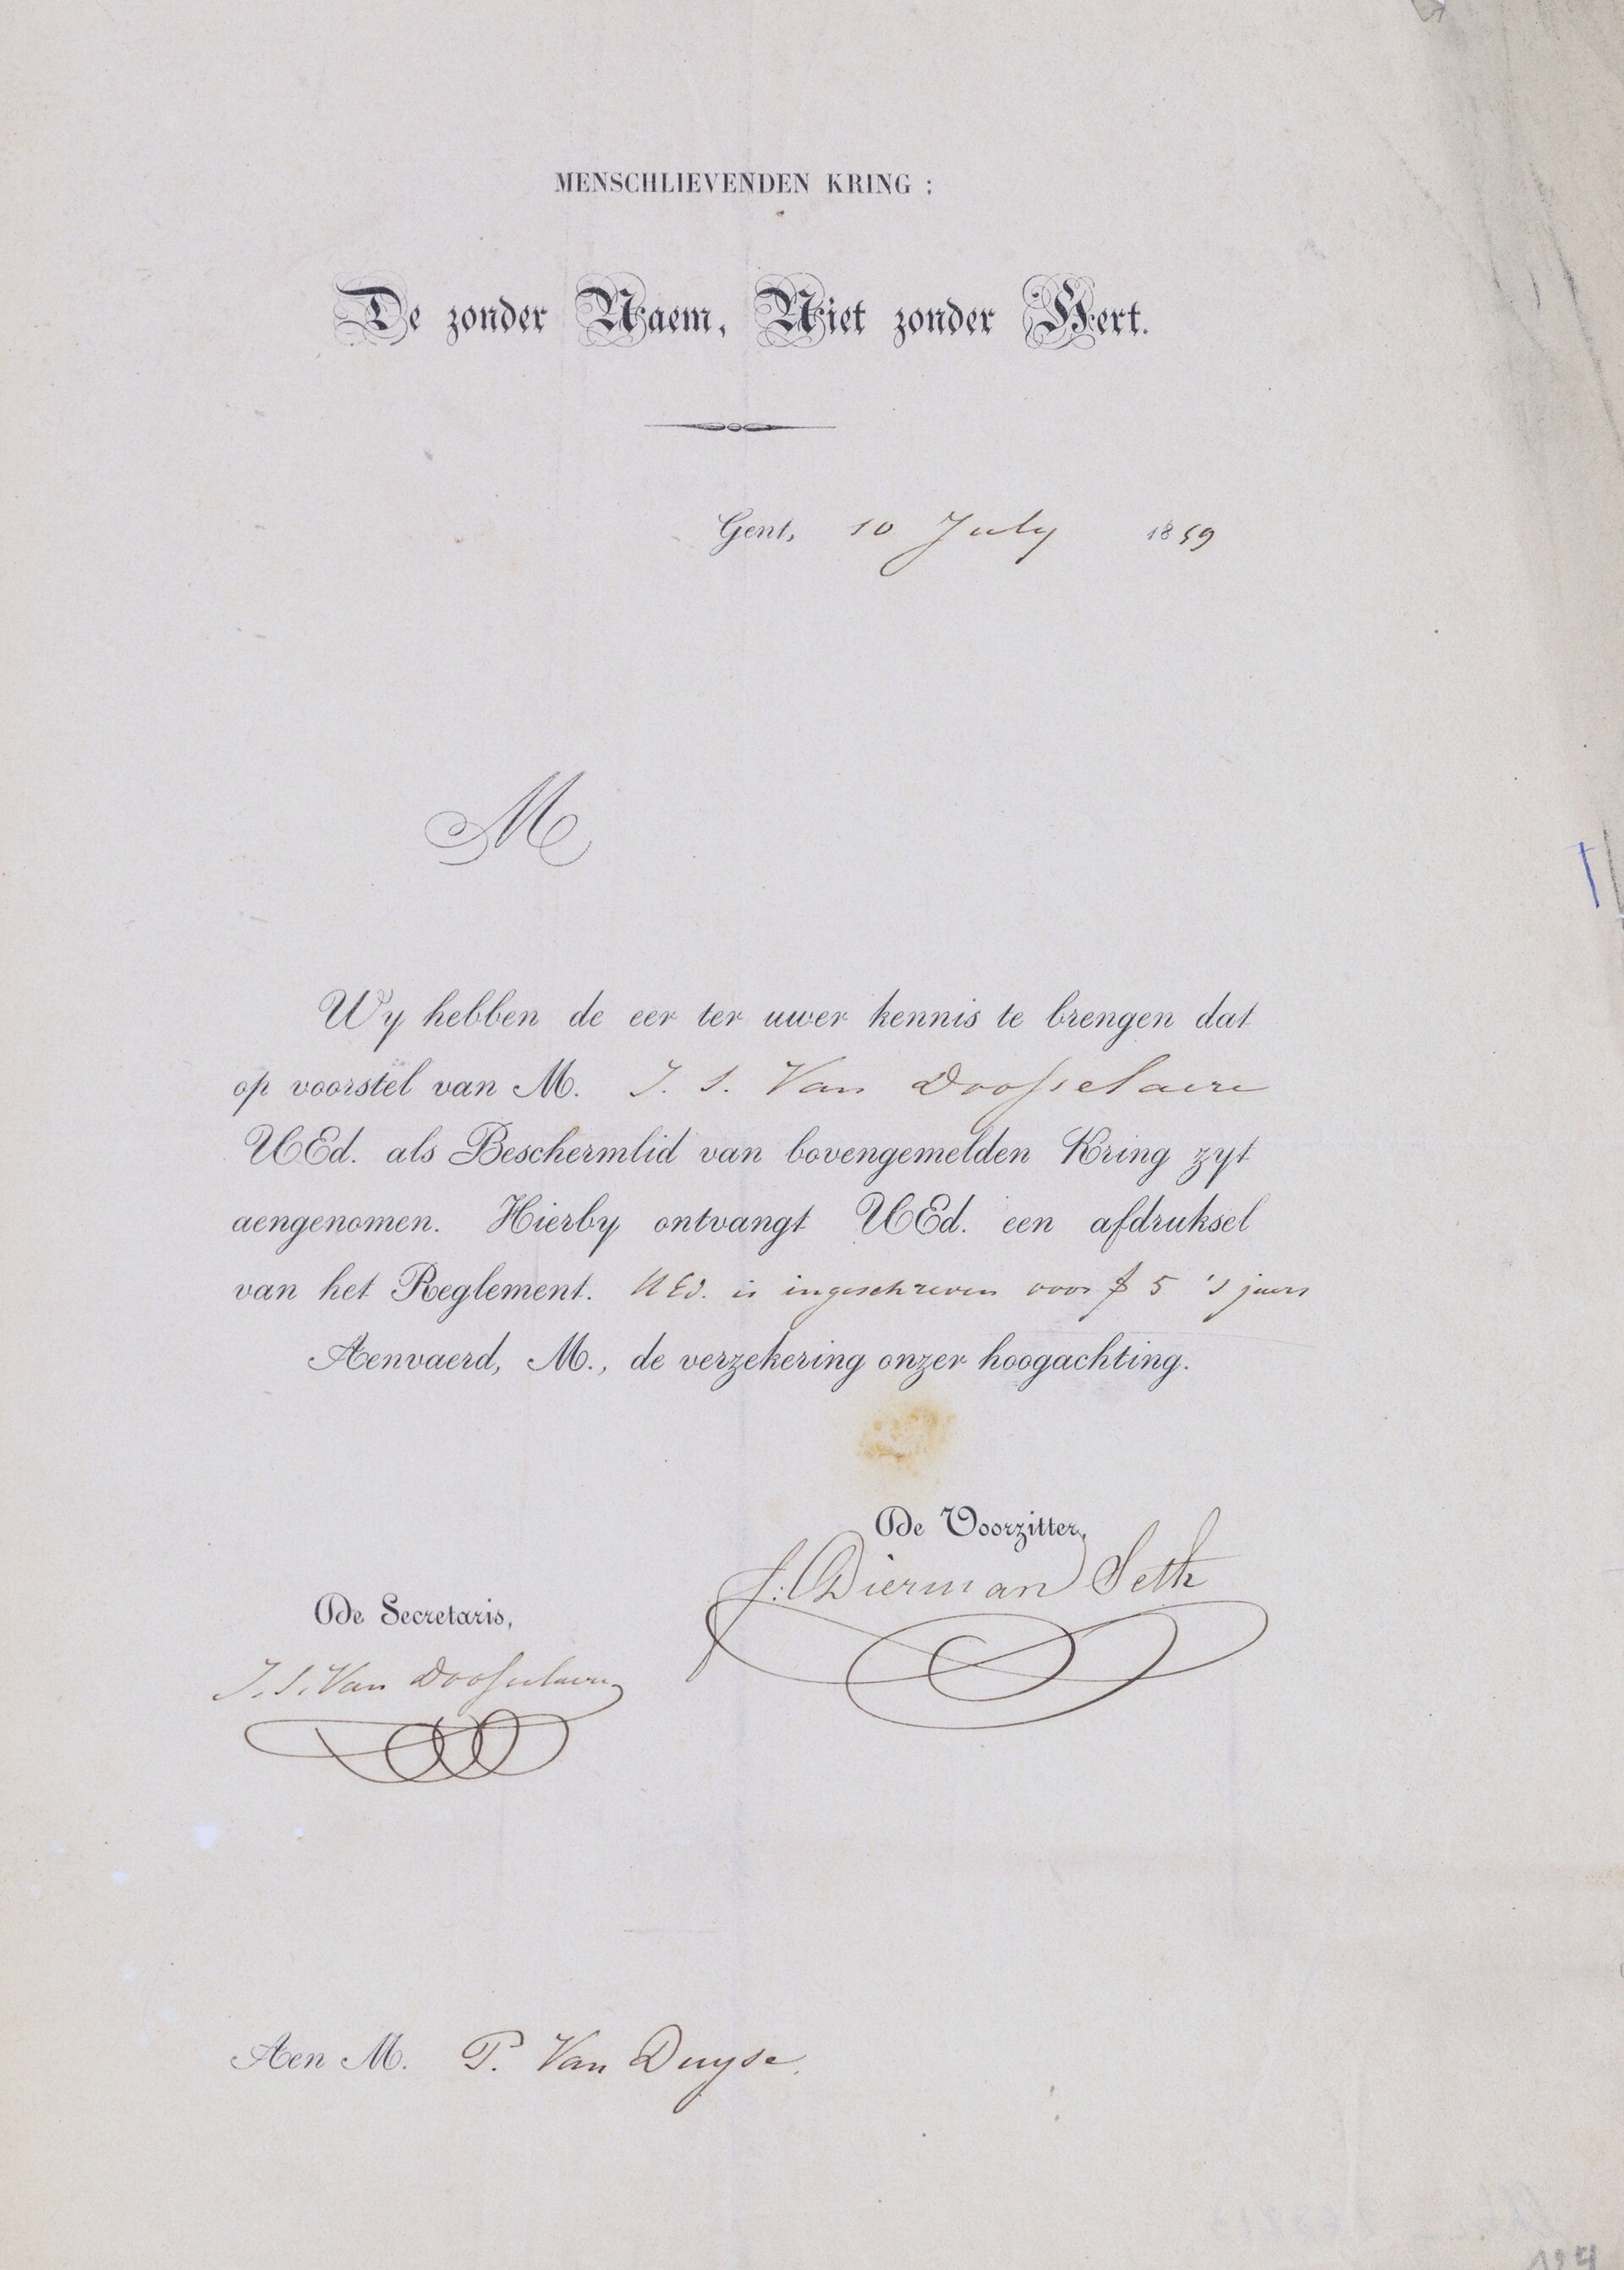 MENSCHLIEVENDEN KRING :
De zonder Naem, Niet zonder Hert.
Gent, 10 July 1859
M
Wy hebben de eer ter uwer kennis te brengen dat
op voorstel van M. J. S. Van Doosselaere
UEd. als Beschermlid van bovengemelden Kring zyt
aengenomen. Hierby ontvangt UEd. een afdruksel
van het Reglement. UEd. is ingeschreven voor f 5 's jaers
Aenvaerd, M., de verzekering onzer hoogachting.
De Voorzitter,
f: Dierman Seth
De Secretaris,
J. S. Van Doosselaere
Aen M. P. Van Duyse.